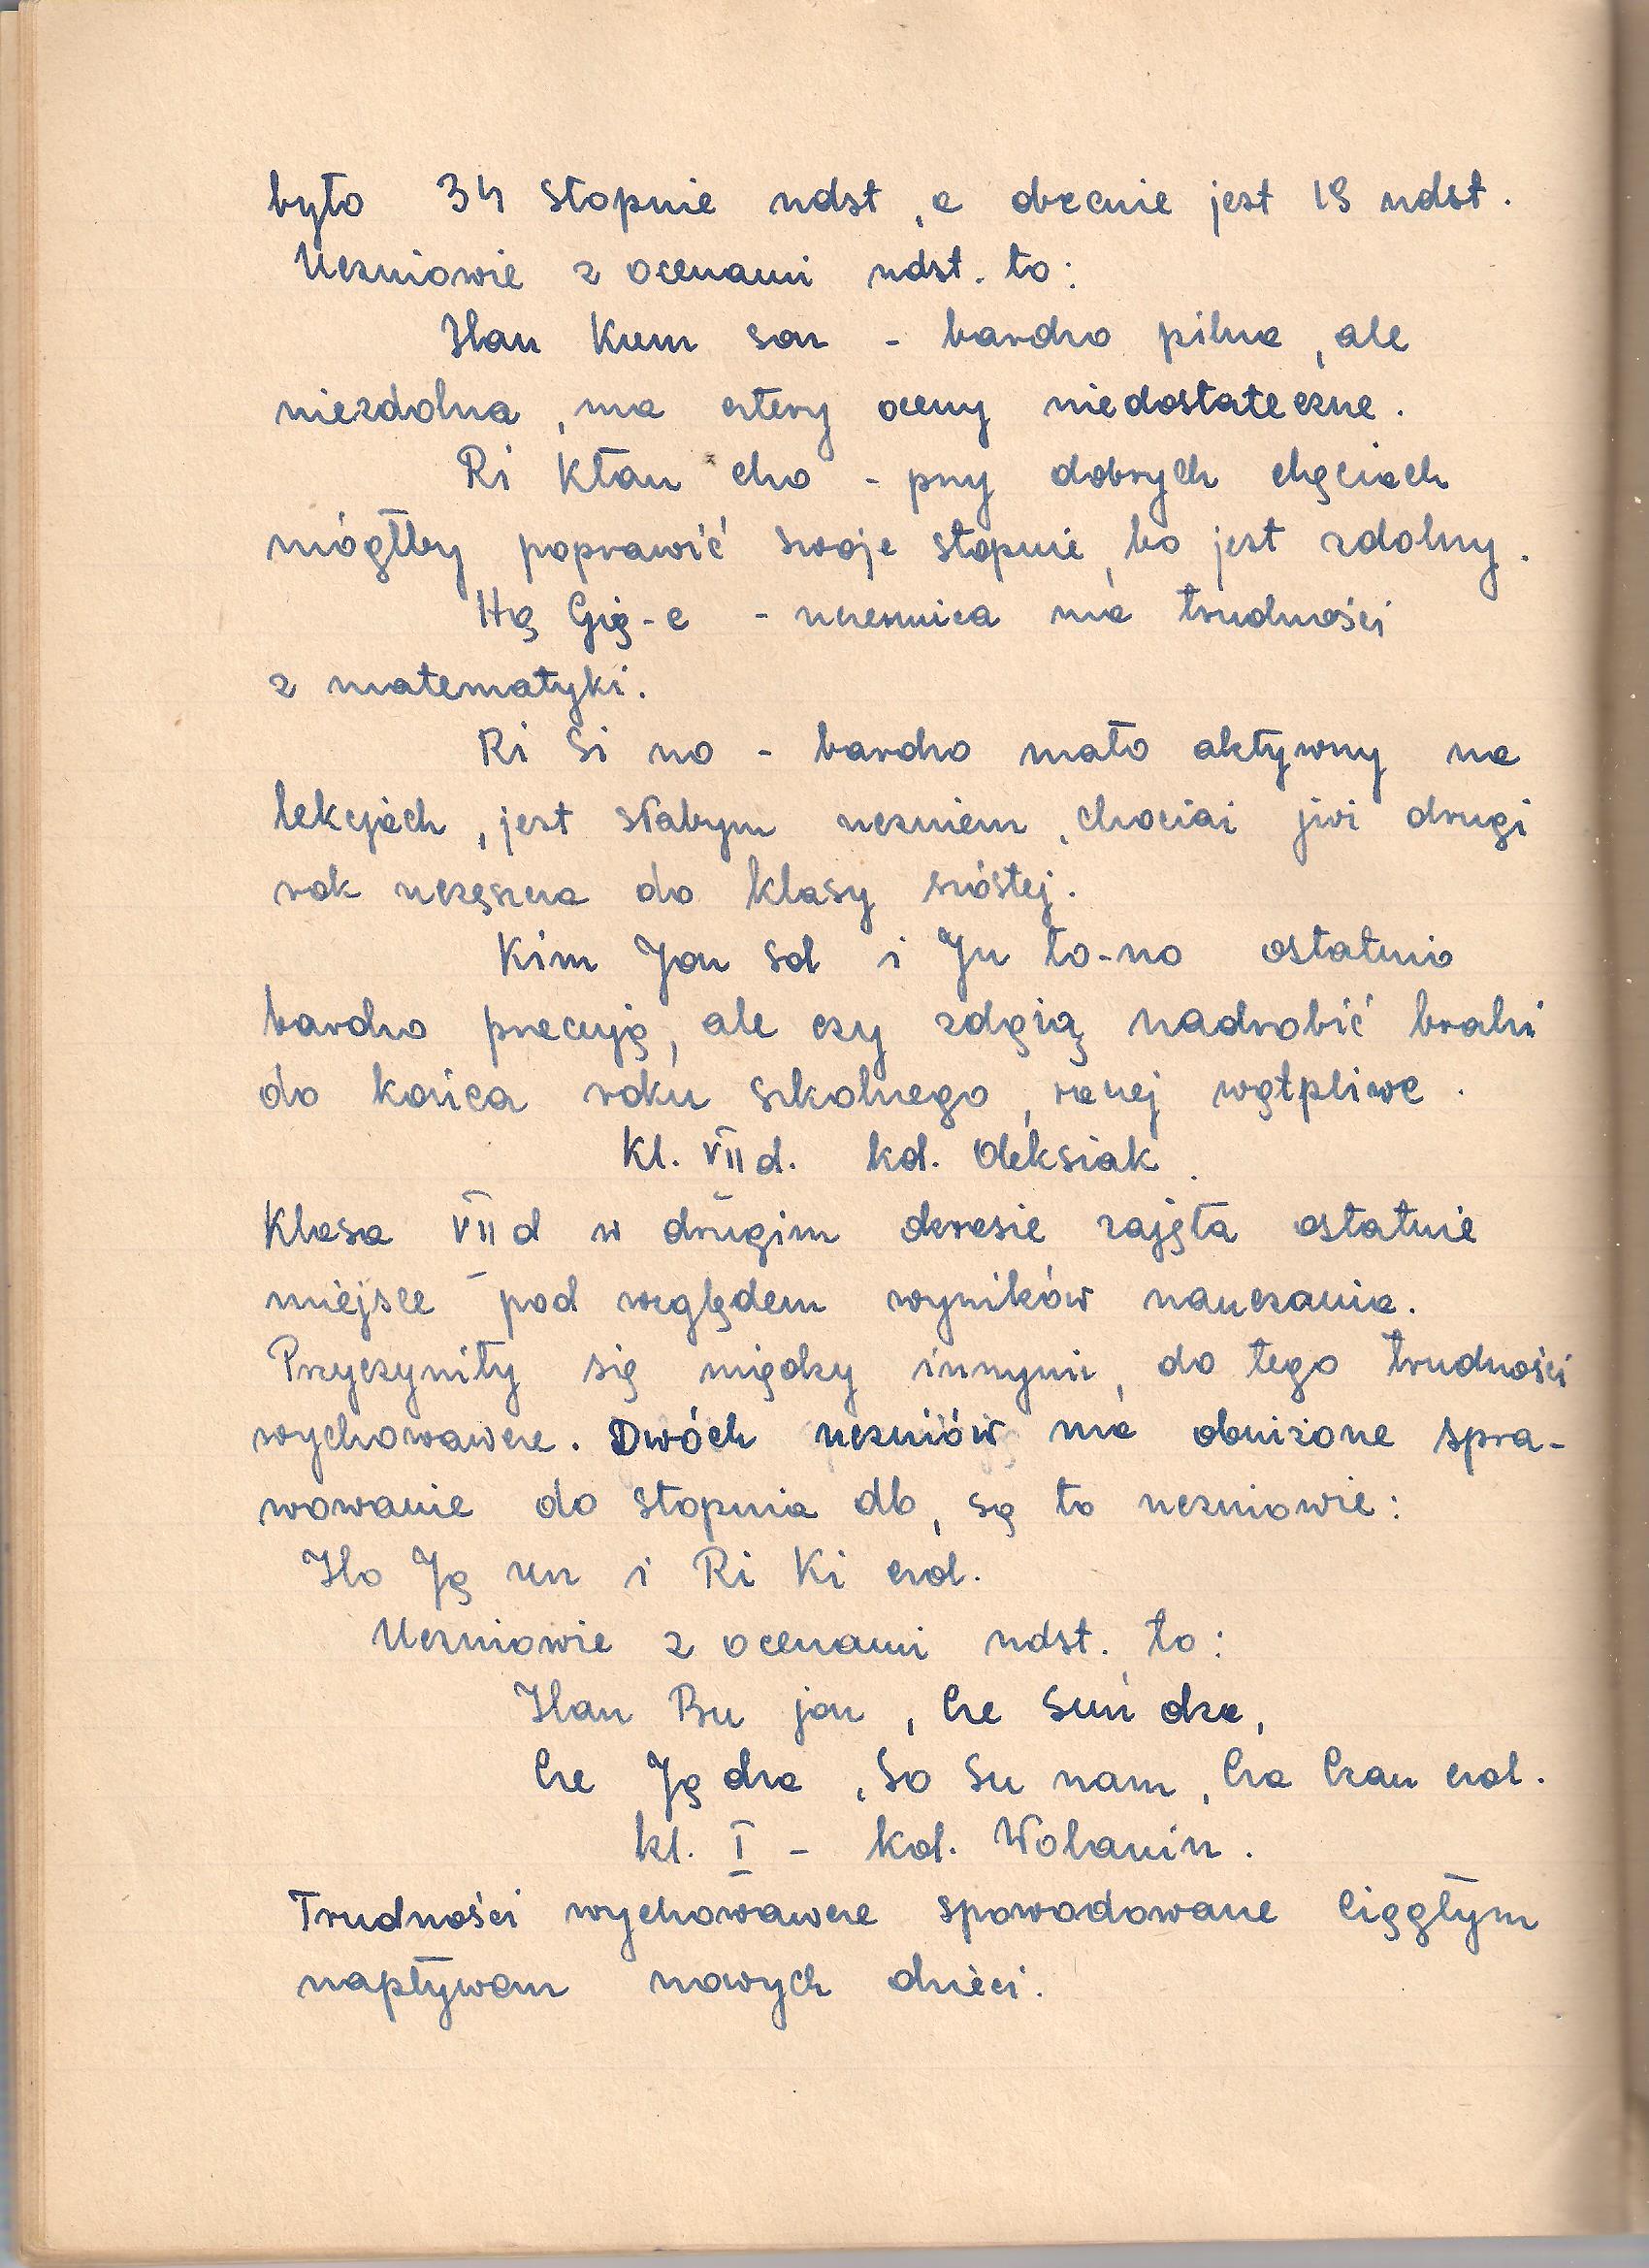 było 34 stopnie ndst, a obecnie jest 19 ndst.
Uczniowie z ocenami ndst. to:
Han Kum son - bardzo pilna, ale
niezdolna, ma cztery oceny niedostateczne.
Ri Kłan cho - przy dobrych chęciach
mógłby poprawić swoje stopnie, bo jest zdolny.
Hę Gię-e - uczennica ma trudności
z matematyki.
Ri Si no - bardzo mało aktywny na
lekcjach, jest słabym uczniem, chociaż już drugi
rok uczęszcza do klasy szóstej.
Kim Jon sol i Ju to-no ostatnio
bardzo pracują, ale czy zdążą nadrobić braki
do końca roku szkolnego, raczej wątpliwe.
Kl. VII d. kol. Oleksiak.
Klasa VII d w drugim okresie zajęła ostatnie
miejsce pod względem wyników nauczania.
Przyczyniły się między innymi, do tego trudności
wychowawcze. Dwóch uczniów ma obniżone spra-
wowanie do stopnia db, są to uczniowie:
Ho Ję un i Ri Ki czol.
Uczniowie z ocenami ndst. to:
Han Bu jon, Cze Sun dza,
Cze Ję dza, So Su nam, Cza Czan czol.
kl. I - kol. Wolanin.
Trudności wychowawcze spowodowane ciągłym
napływem nowych dzieci.